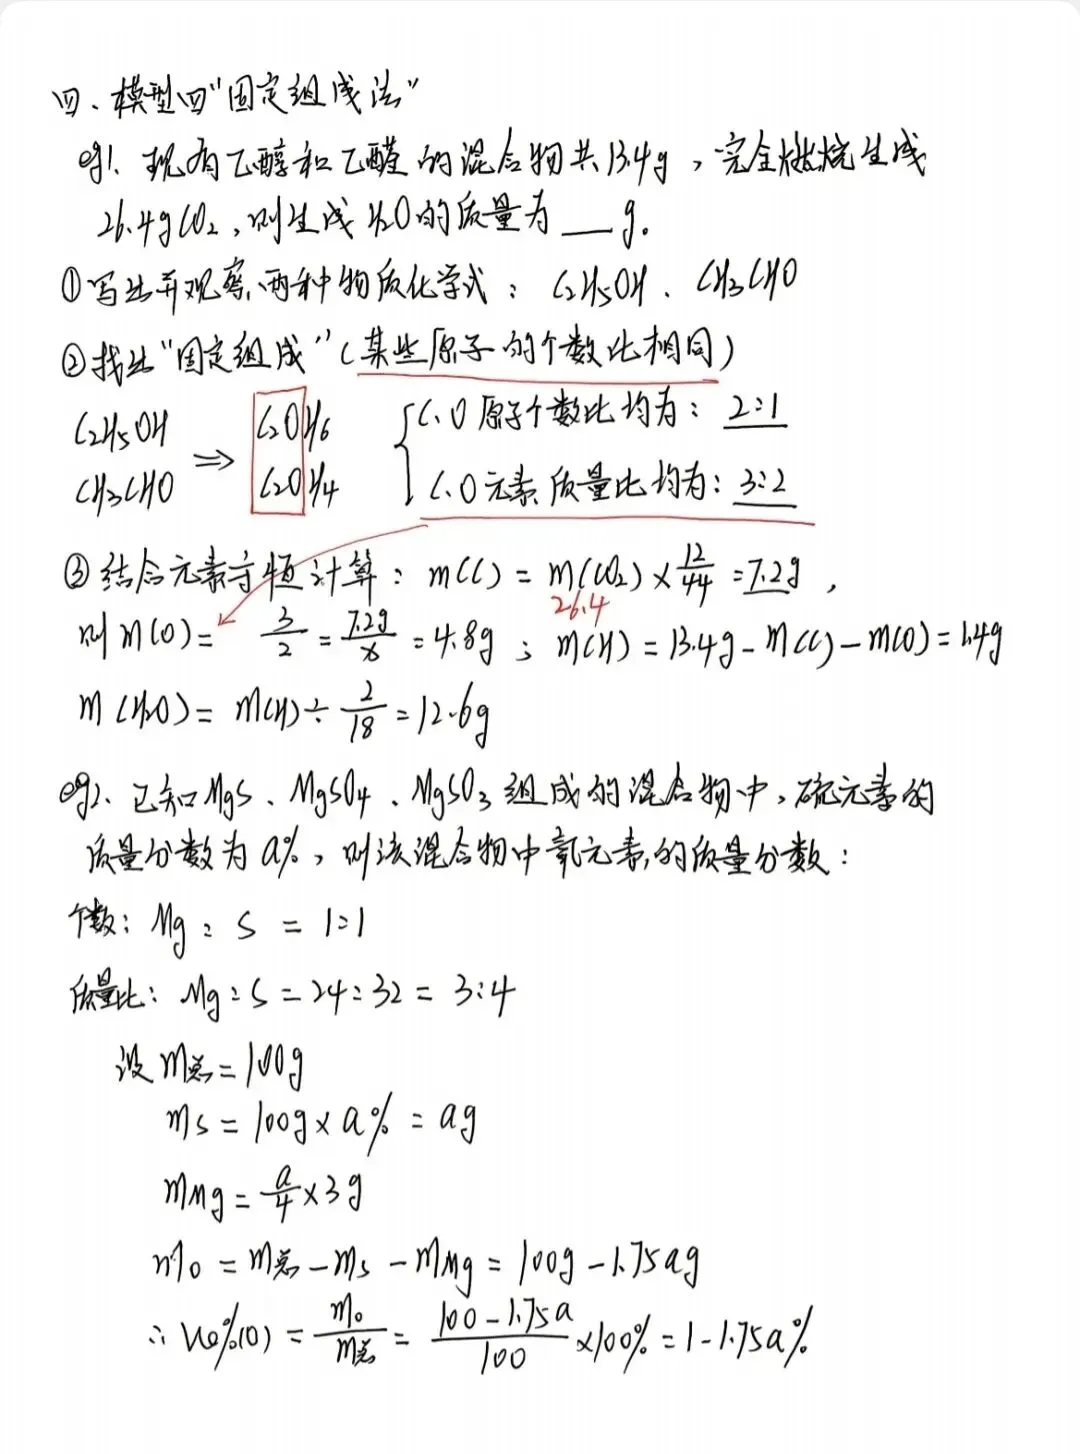 四、模型四"固定组成法"
eg1. 现有乙醇和乙醛的混合物共13.4g，完全燃烧生成
26.4gCO₂，则生成H₂O的质量为___g。
①写出并观察两种物质化学式：C₂H₅OH、CH₃CHO
②找出"固定组成"(某些原子的个数比相同)
C₂H₅OH
CH₃CHO
⇒
C₂OH₆
C₂OH₄
{C、O原子个数比均为：2:1
C、O元素质量比均为：3:2
③结合元素守恒计算：m(C) = m(CO₂)×12/44=7.2g，
26.4
则m(O)= 3/2=7.2g/x=4.8g；m(H)=13.4g-m(C)-m(O)=1.4g
m(H₂O)=m(H)÷2/18=12.6g
eg2. 已知MgS、MgSO₄、MgSO₃组成的混合物中，硫元素的
质量分数为a%，则该混合物中氧元素的质量分数：
个数：Mg:S=1:1
质量比：Mg:S=24:32=3:4
设m总=100g
ms=100g×a%=ag
mMg=a/4×3g
mo=m总-ms-mMg=100g-1.75ag
∴W%(O)=mo/m总=100-1.75a/100×100%=1-1.75a%